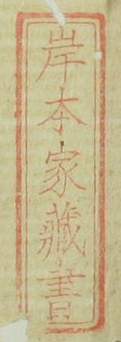 岸本家藏書